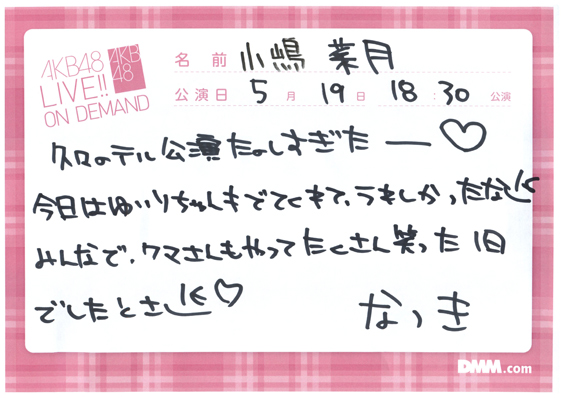 AKB48
LIVE!!
ON DEMAND
AKB
48
名前 小嶋 菜月
公演日 5月 19日 18:30 公演
久々のテル公演たのしすぎたー♡
今日はゆいりちゃんもでてくれて、うれしかったなし
みんなで、クマさんもやってたくさん笑った1日
でしたとさし♡
なつき
DMM.com